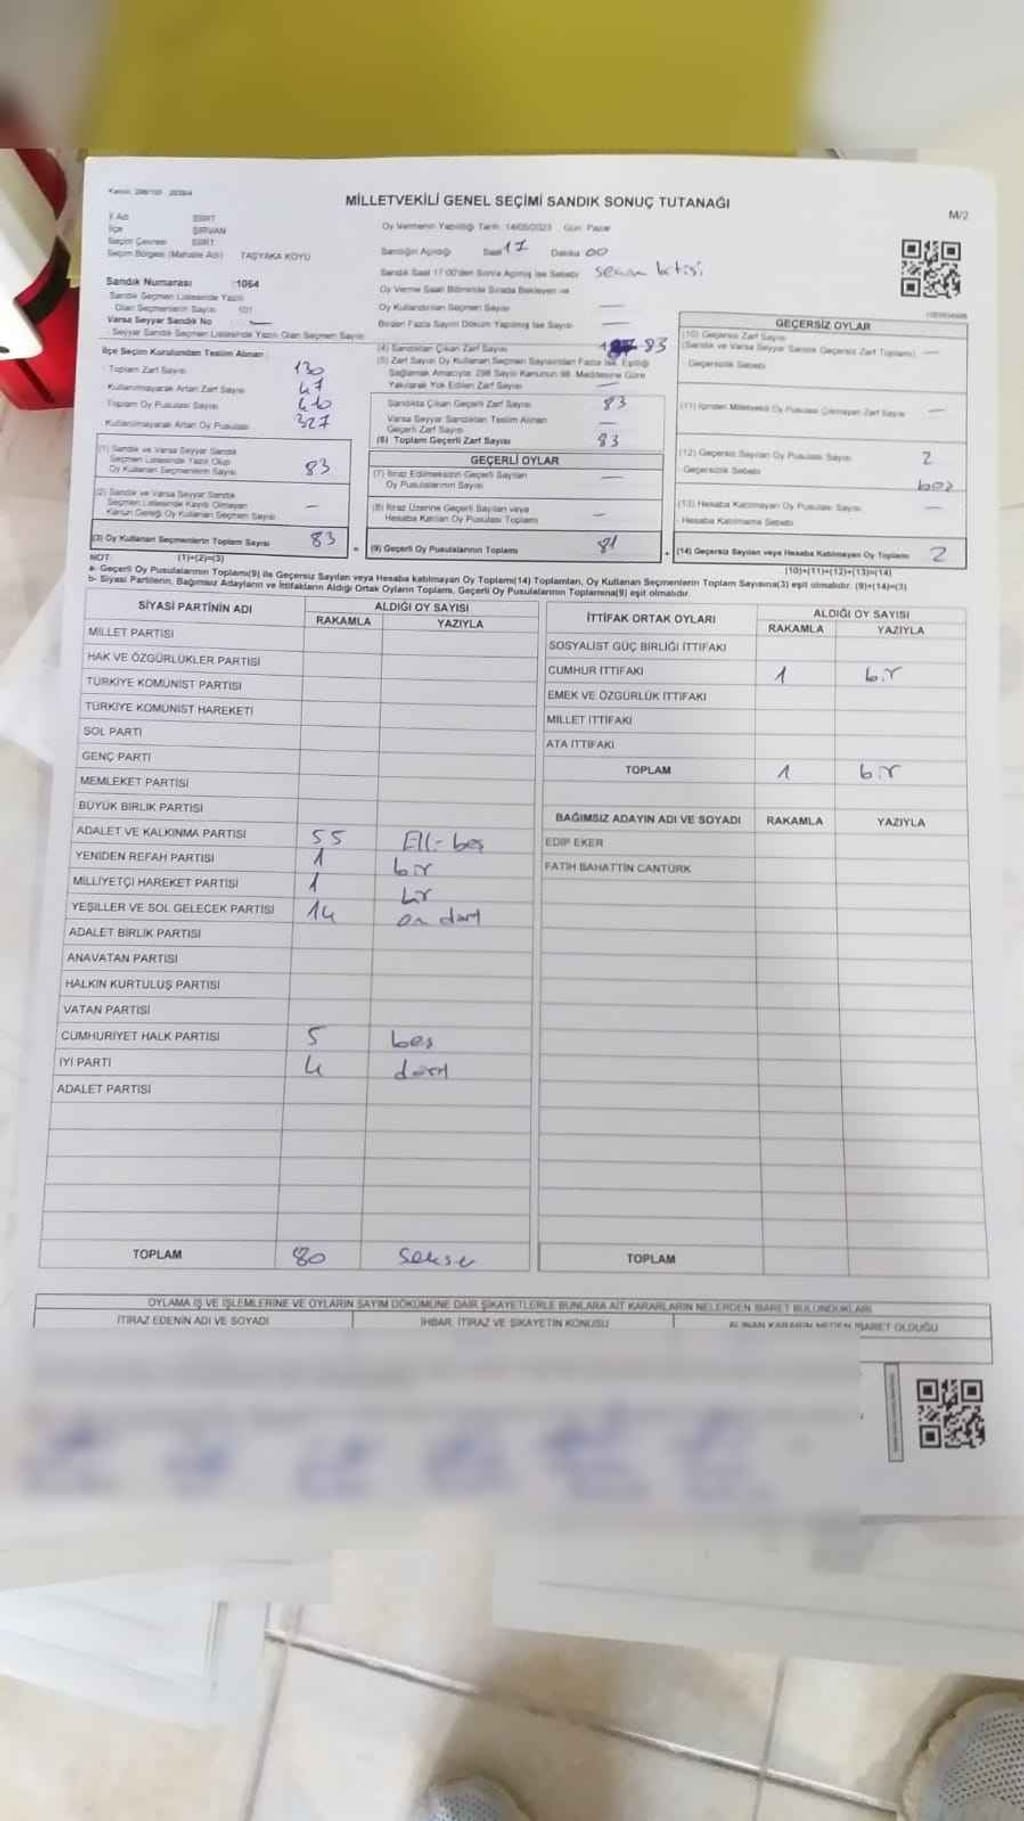 MİLLETVEKİLİ GENEL SEÇİMİ SANDIK SONUÇ TUTANAĞI
M/2
İl Adı SİİRT
İlçe ŞİRVAN
Seçim Çevresi SİİRT
Seçim Bölgesi (Mahalle Adı) TAŞYAKA KÖYÜ
Sandık Numarası :1064
Sandık Seçmen Listesinde Yazılı
Olan Seçmenlerin Sayısı 101
Varsa Seyyar Sandık No —
Seyyar Sandık Seçmen Listesinde Yazılı Olan Seçmen Sayısı
Oy Vermenin Yapıldığı Tarih 14/05/2023 Gün Pazar
Sandığın Açıldığı Saat 17 Dakika 00
Sandık Saat 17:00'den Sonra Açılmış İse Sebebi
Oy Verme Saati Bitiminde Sırada Bekleyen ve
Oy Kullandırılan Seçmen Sayısı —
Birden Fazla Sayım Döküm Yapılmış İse Sayısı —
İlçe Seçim Kurulundan Teslim Alınan
Toplam Zarf Sayısı 130
Kullanılmayarak Artan Zarf Sayısı 47
Toplam Oy Pusulası Sayısı 410
Kullanılmayarak Artan Oy Pusulası 327
(1) Sandık ve Varsa Seyyar Sandık
Seçmen Listesinde Yazılı Olup
Oy Kullanan Seçmenlerin Sayısı 83
(2) Sandık ve Varsa Seyyar Sandık
Seçmen Listesinde Kayıtlı Olmayan
Kanun Gereği Oy Kullanan Seçmen Sayısı —
(3) Oy Kullanan Seçmenlerin Toplam Sayısı 83
(1)+(2)=(3)
(4) Sandıktan Çıkan Zarf Sayısı 83
(5) Zarf Sayısı Oy Kullanan Seçmen Sayısından Fazla İse, Eşitliği
Sağlamak Amacıyla 298 Sayılı Kanunun 98. Maddesine Göre
Yakılarak Yok Edilen Zarf Sayısı —
Sandıkta Çıkan Geçerli Zarf Sayısı 83
Varsa Seyyar Sandıktan Teslim Alınan
Geçerli Zarf Sayısı —
(6) Toplam Geçerli Zarf Sayısı 83
GEÇERLİ OYLAR
(7) İtiraz Edilmeksizin Geçerli Sayılan
Oy Pusulalarının Sayısı —
(8) İtiraz Üzerine Geçerli Sayılan veya
Hesaba Katılan Oy Pusulası Toplamı —
(9) Geçerli Oy Pusulalarının Toplamı 81
GEÇERSİZ OYLAR
(10) Geçersiz Zarf Sayısı
(Sandık ve Varsa Seyyar Sandık Geçersiz Zarf Toplamı) —
Geçersizlik Sebebi
(11) İçinden Milletvekili Oy Pusulası Çıkmayan Zarf Sayısı —
(12) Geçersiz Sayılan Oy Pusulası Sayısı 2
Geçersizlik Sebebi
(13) Hesaba Katılmayan Oy Pusulası Sayısı —
Hesaba Katılmama Sebebi
(14) Geçersiz Sayılan veya Hesaba Katılmayan Oy Toplamı 2
(10)+(11)+(12)+(13)=(14)
NOT:
a- Geçerli Oy Pusulalarının Toplamı(9) ile Geçersiz Sayılan veya Hesaba katılmayan Oy Toplamı(14) Toplamları, Oy Kullanan Seçmenlerin Toplam Sayısına(3) eşit olmalıdır. (9)+(14)=(3)
b- Siyasi Partilerin, Bağımsız Adayların ve İttifakların Aldığı Ortak Oyların Toplamı, Geçerli Oy Pusulalarının Toplamına(9) eşit olmalıdır.
SİYASİ PARTİNİN ADI ALDIĞI OY SAYISI
RAKAMLA YAZIYLA
MİLLET PARTİSİ
HAK VE ÖZGÜRLÜKLER PARTİSİ
TÜRKİYE KOMÜNİST PARTİSİ
TÜRKİYE KOMÜNİST HAREKETİ
SOL PARTİ
GENÇ PARTİ
MEMLEKET PARTİSİ
BÜYÜK BİRLİK PARTİSİ
ADALET VE KALKINMA PARTİSİ 55 Elli beş
YENİDEN REFAH PARTİSİ 1 bir
MİLLİYETÇİ HAREKET PARTİSİ 1 bir
YEŞİLLER VE SOL GELECEK PARTİSİ 14 on dört
ADALET BİRLİK PARTİSİ
ANAVATAN PARTİSİ
HALKIN KURTULUŞ PARTİSİ
VATAN PARTİSİ
CUMHURİYET HALK PARTİSİ 5 beş
İYİ PARTİ 4 dört
ADALET PARTİSİ
TOPLAM 80 Seksen
İTTİFAK ORTAK OYLARI ALDIĞI OY SAYISI
RAKAMLA YAZIYLA
SOSYALİST GÜÇ BİRLİĞİ İTTİFAKI
CUMHUR İTTİFAKI 1 bir
EMEK VE ÖZGÜRLÜK İTTİFAKI
MİLLET İTTİFAKI
ATA İTTİFAKI
TOPLAM 1 bir
BAĞIMSIZ ADAYIN ADI VE SOYADI RAKAMLA YAZIYLA
EDİP EKER
FATİH BAHATTİN CANTÜRK
TOPLAM
OYLAMA İŞ VE İŞLEMLERİNE VE OYLARIN SAYIM DÖKÜMÜNE DAİR ŞİKAYETLERLE BUNLARA AİT KARARLARIN NELERDEN İBARET BULUNDUKLARI
İTİRAZ EDENİN ADI VE SOYADI İHBAR, İTİRAZ VE ŞİKAYETİN KONUSU ALINAN KARARIN NEDEN İBARET OLDUĞU